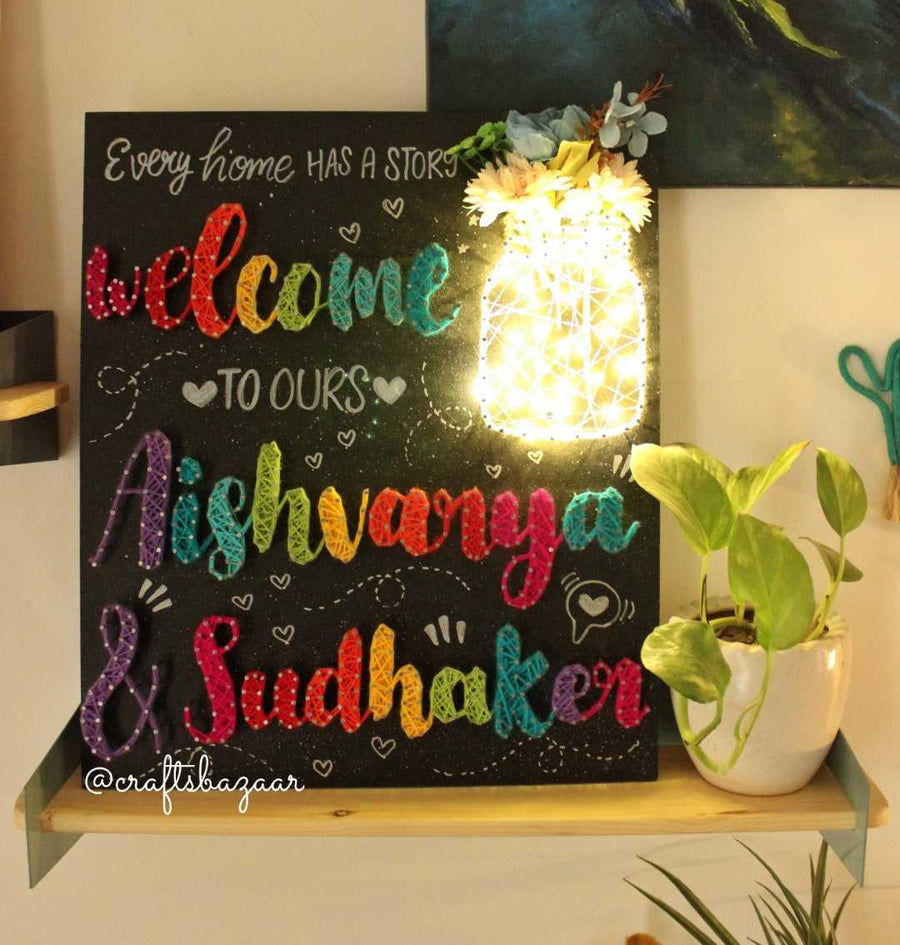 Every home HAS A STORY
welcome
TO OURS
Aishvarya
& Sudhaker
@craftsbazaar